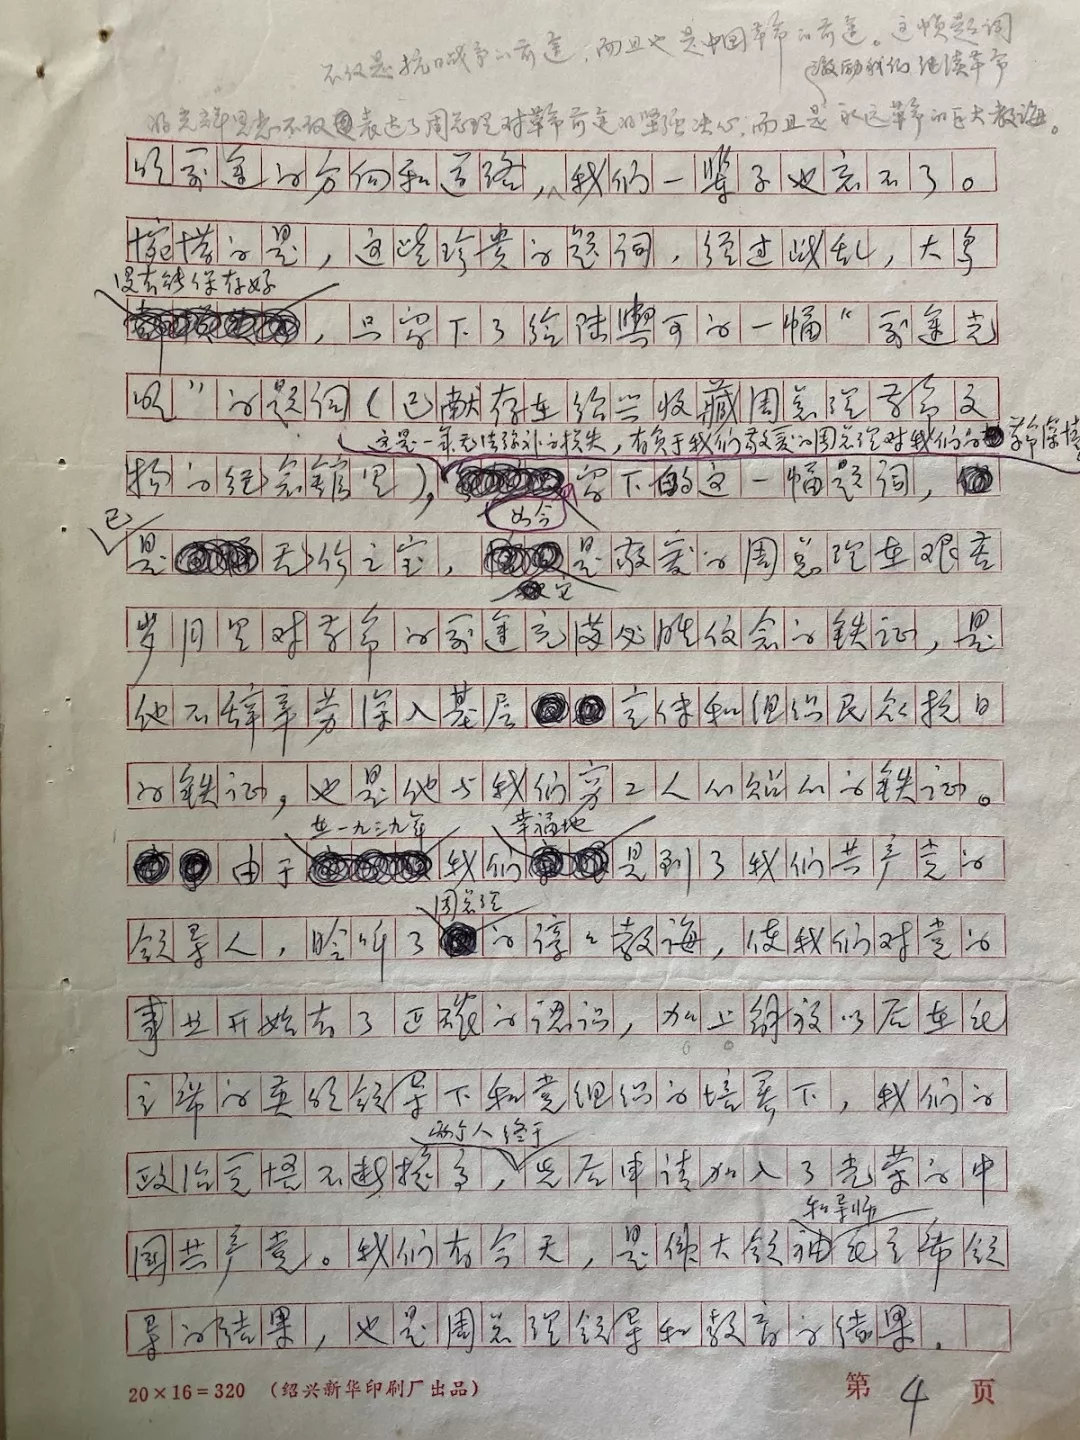 不仅是抗日战争的前途，而且也是中国革命的前途。这帧题词
激励我们继续革命
的光辉思想不仅表达了周总理对革命前途的坚强决心，而且是永远革命的巨大教诲。
的前途的方向和道路，我们一辈子也忘不了。
惋惜的是，这些珍贵的题词，经过战乱，大多
没有能保存好
，只留下了给陆與可的一幅“前途光
明”的题词（已献存在绍兴收藏周总理革命文
这是一年无法弥补的损失，有负于我们敬爱的周总理对我们的革命深情
物的纪念馆里），留下的这一幅题词，
如今
已
是无价之宝，是敬爱的周总理在艰苦
它
岁月里对革命的前途充满必胜信念的铁证，是
他不辞辛劳深入基层宣传和组织民众抗日
的铁证，也是他与我们穷工人心贴心的铁证。
在一九三九年 幸福地
由于我们见到了我们共产党的
周总理
领导人，聆听了的谆々教诲，使我们对党的
事业开始有了正确的认识，加上解放以后在毛
主席的英明领导下和党组织的培养下，我们的
两个人终于
政治觉悟不断提高，先后申请加入了光荣的中
和导师
国共产党。我们有今天，是伟大领袖毛主席领
导的结果，也是周总理领导和教育的结果。
20×16=320 （绍兴新华印刷厂出品） 第 4 页